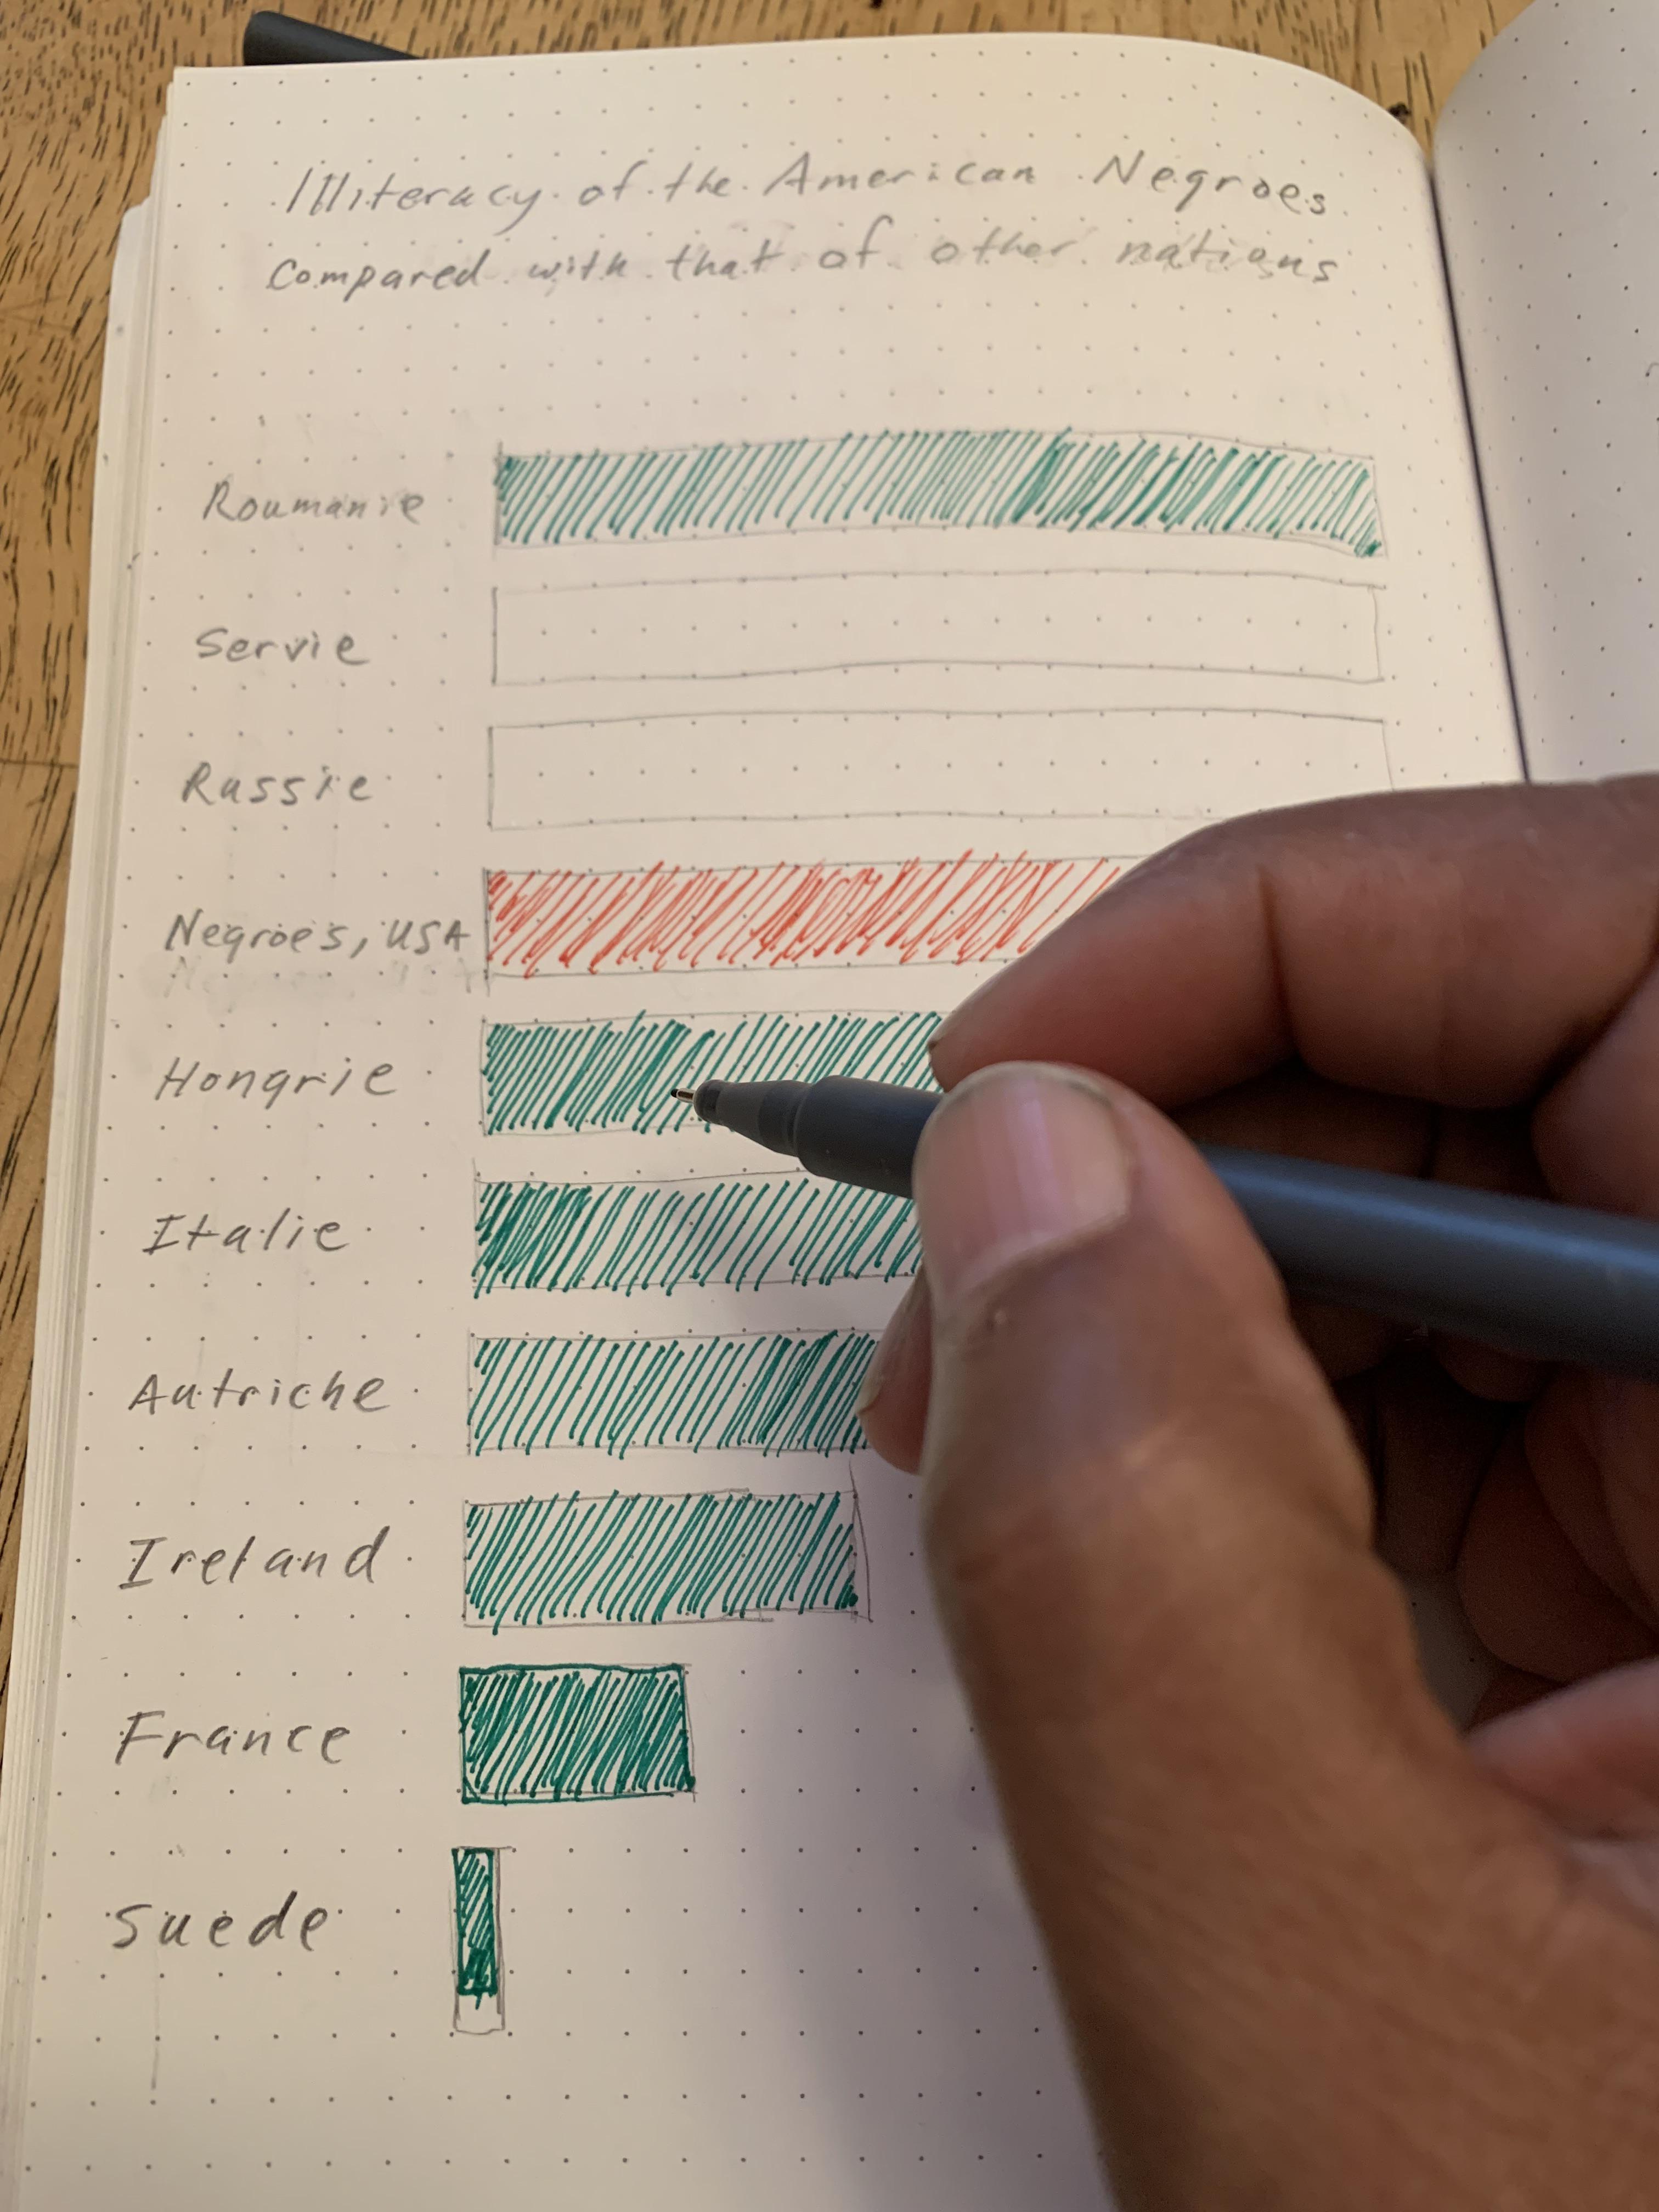 Illiteracy of the American Negroes
Compared with that of other nations
Roumanie
Servie
Russie
Negroes, USA
Hongrie
Italie
Autriche
Ireland
France
Suede